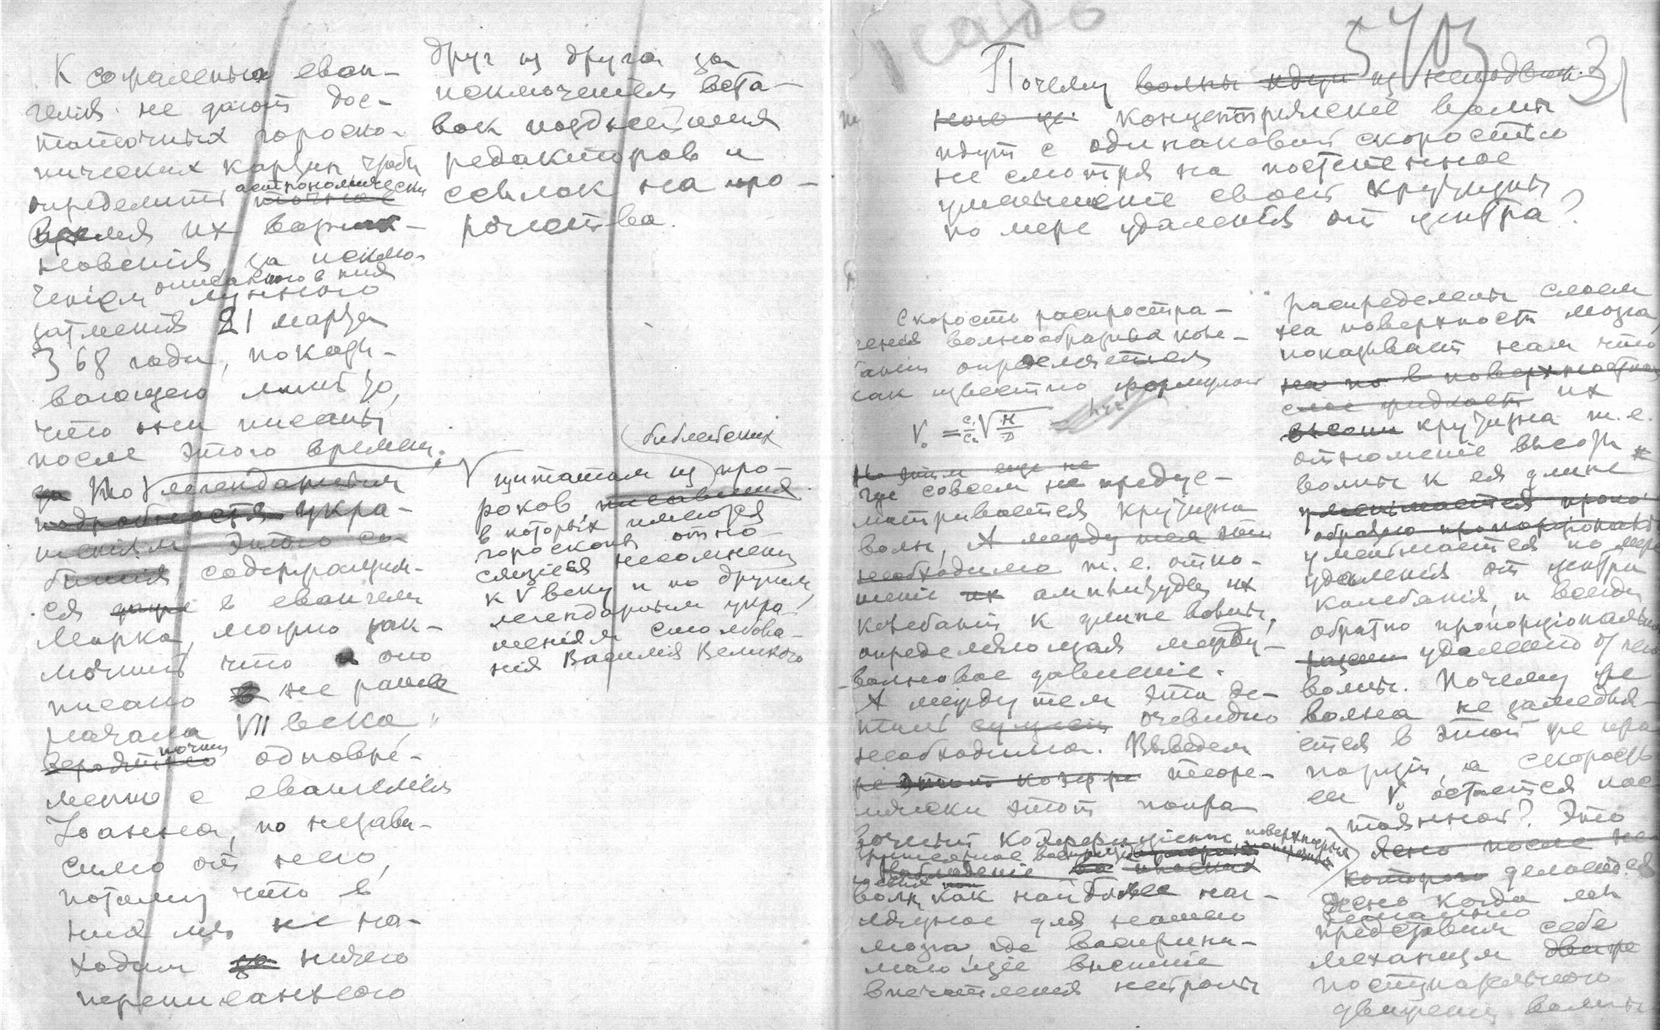 К сожаленью еван-
гелия не дают дос-
таточных гороско-
пических картин чтобы
определить астрономически точное
время их возник-
новения за исклю-
чением описанного в них лунного
затмения 21 марта
368 года, показы-
вающего лишь то,
что они писаны
после этого времени.
за то легендарным
подробностям укра-
шениям этого со-
бытия содержащим-
ся в евангелии
Марка, можно зак-
лючить что оно
писано не ранее
начала VII века,
вероятно почти одновре-
менно с евангелием
Иоанна, но незави-
симо от него
потому что в
них мы не на-
ходим ничего
переписанного
друг из друга за
исключением вста-
вок позднейших
редакторов и
ссылок на про-
рочества.
библейских
V цитатам из про-
роков, писавших
в которых имеются
гороскопы относ
сящиеся несомненно
к V веку и по другим
легендарным укра-
шениям столбова-
ния Василия Великого
5703
31
Почему волны идут из неподвиж-
ного це концентрические волны
идут с одинаковой скоростью
не смотря на постепенное
уменьшение своей кривизны
по мере удаления от центра?
Скорость распростра-
нения волнообразных коле-
баний определяется
как известно формулой
V₀ = c₁/c₂ √H/D =
На этом еще не
где совсем не предус-
матривается кривизна
волн, А между тем эта
необходимо т.е. отно-
шение их амплитуды их
колебаний к длине волны,
определяющая между-
волновое давление.
А между тем эта де-
таль очевидно
необходима. Выведем
теоре-
тически этот попра
вочный коэффициент
волн как наиболее наг-
лядное для нашего
мозга где воспри-
мающие внешние
впечатления нейроны
распределены слоем
на поверхности мозга,
показывает нам что
на по в поверхностном
слое жидкости их
высоты кривизна т.е.
отношение высоты
волны к ея длине
уменьшается пропо
обратно пропорционально
уменьшается по мере
удаления от центра
колебания, и всегда
обратно пропорциональна
удалению от него
волны. Почему же
волна не замедля-
ется в этой же про
порции, а скорость
ея V₀ остается пос
тоянной? Это
ясно после не
которого делается
ясно когда мы
детально
представим себе
механизм
поступательного
движения волны